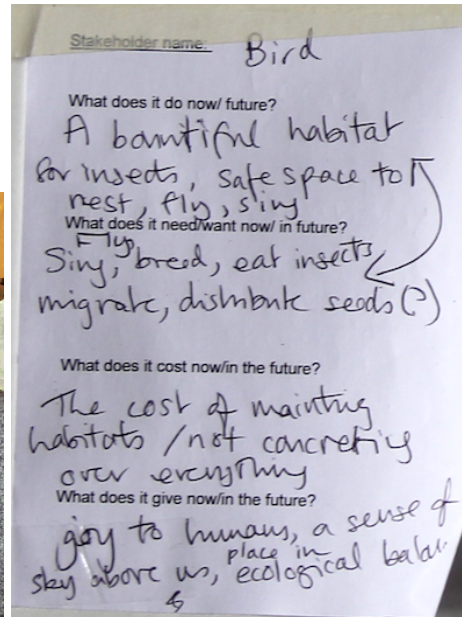 Stakeholder name: Bird
What does it do now/ future?
A bountiful habitat
for insects, safe space to
nest, fly, sing
What does it need/want now/ in future?
Fly,
Sing, breed, eat insects,
migrate, distribute seeds (?)
What does it cost now/in the future?
The cost of
habitats / not concreting
over everything
What does it give now/in the future?
to humans, a sense of
place in
sky above us, ecological